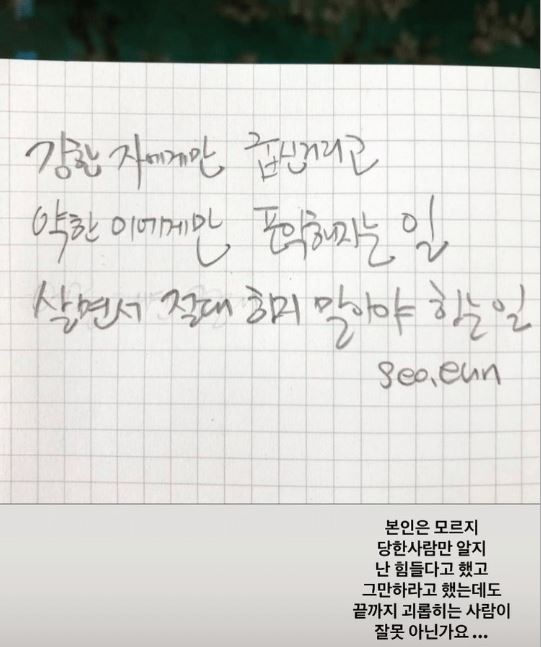 강한 자에게만 굽신거리고
약한 이에게만 포악해지는 일
살면서 절대 하지 말아야 하는 일
seo.eun
본인은 모르지
당한사람만 알지
난 힘들다고 했고
그만하라고 했는데도
끝까지 괴롭히는 사람이
잘못 아닌가요 ...